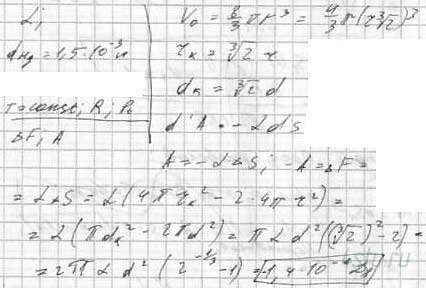 α;
d_Hg = 1,5·10⁻³ м
T = const; R; P₀
ΔF; A
V₀ = 8/3 πr³ = 4/3 π(r∛2)³
r_k = ∛2 r
d_k = ∛2 d
d'A = -αdS
A = -αΔS; -A = ΔF =
= αΔS = α(4πr_k² - 2·4πr²) =
= α(πd_k² - 2πd²) = παd²((∛2)² - 2) =
= 2παd²(2^(-1/3) - 1) =